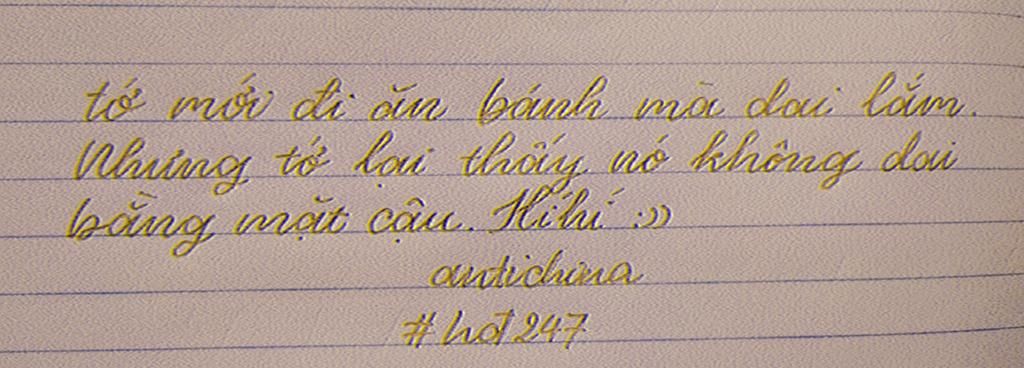 tớ mới đi ăn bánh mà dai lắm.
Nhưng tớ lại thấy nó không dai
bằng mặt cậu. Híhí :))
antichina
#hot247